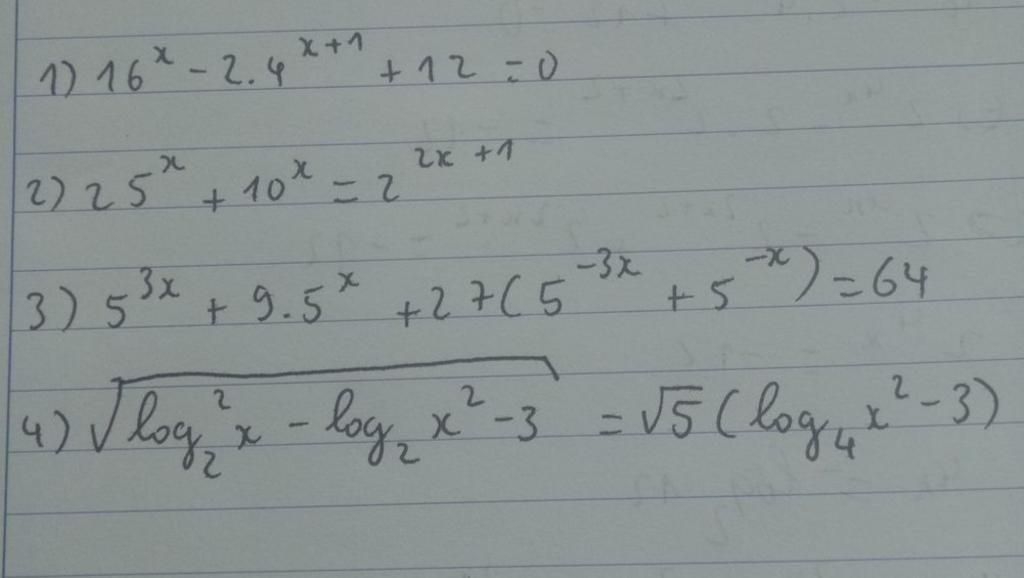 1) 16^x - 2.4^{x+1} + 12 = 0
2) 25^x + 10^x = 2^{2x+1}
3) 5^{3x} + 9.5^x + 27(5^{-3x} + 5^{-x}) = 64
4) √(log_2^2 x - log_2 x^2 - 3) = √5 (log_4 x^2 - 3)